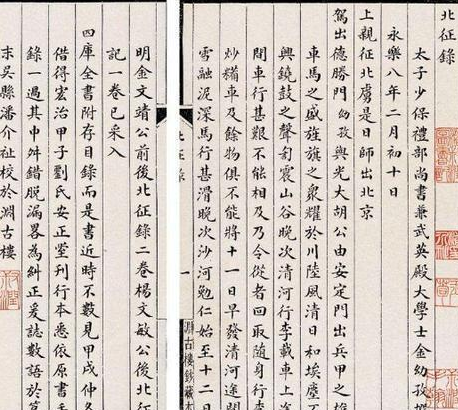 北征錄
太子少保禮部尚書兼武英殿大學士金幼孜
永樂八年二月初十日
上親征北虜是日師出北京
駕出德勝門幼孜與光大胡公由安定門出兵甲之
車馬之盛旌旗之衆耀於川陸風清日和埃塵不
興鐃鼓之聲訇震山谷晚次清河行李載車上
間車行甚艱不能相及乃令從者回取隨身行李
炒糒車及餘物俱不能將十一日早發清河途間
雪融泥深馬行甚滑晚次沙河勉仁始至十二日
北征錄
一
淵古樓鈔藏本
明金文靖公前後北征錄二卷楊文敏公後北征
記一卷已采入
四庫全書附存目錄而是書近時不數見甲戌仲冬
借得宏治甲子劉氏安正堂刊行本悉依原書手
錄一過其中舛錯脫漏畧為糾正爰誌數語於
末吳縣潘介祉校於淵古樓